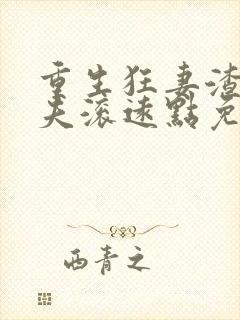 重生狂妻渣
夫滚速點免
西青之